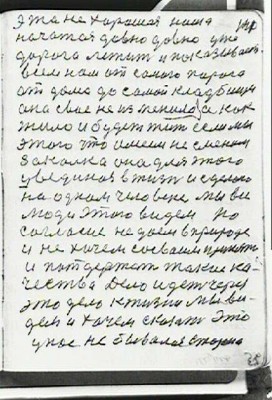 эта не хорошая наша
начатая довно довно уже
дорога лежит и показываеть
всем нам от самого порога
от дома до самой кладбищи
она свое не изменила а как
жило и будет жить если мы
этого что имеем не сменим
Закалка она для этого
увединов в жизни и сделано
на одном человеке мы
люди этого видем но
согласие не даем в природе
и не хочем со своим принять
и поддержать такие ка-
чества Дело идет через
это дело к жизни мы ви-
дем и хочем сказать это
у нас не бывалая сторона